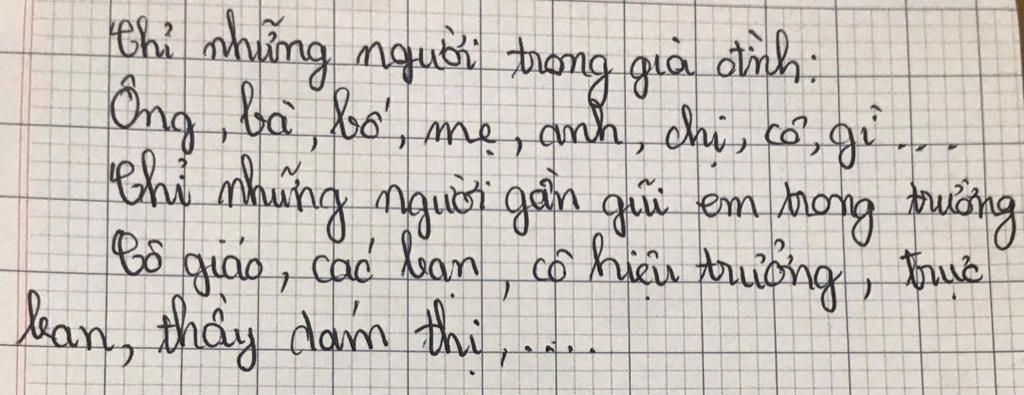 Chỉ những người trong già đình:
Ông, bà, bố, mẹ, anh, chị, cô, gì....
Chỉ những người gần gũi em trong trường
Cô giáo, các bạn, cô hiệu trưởng, trực
ban, thầy dám thị,.....